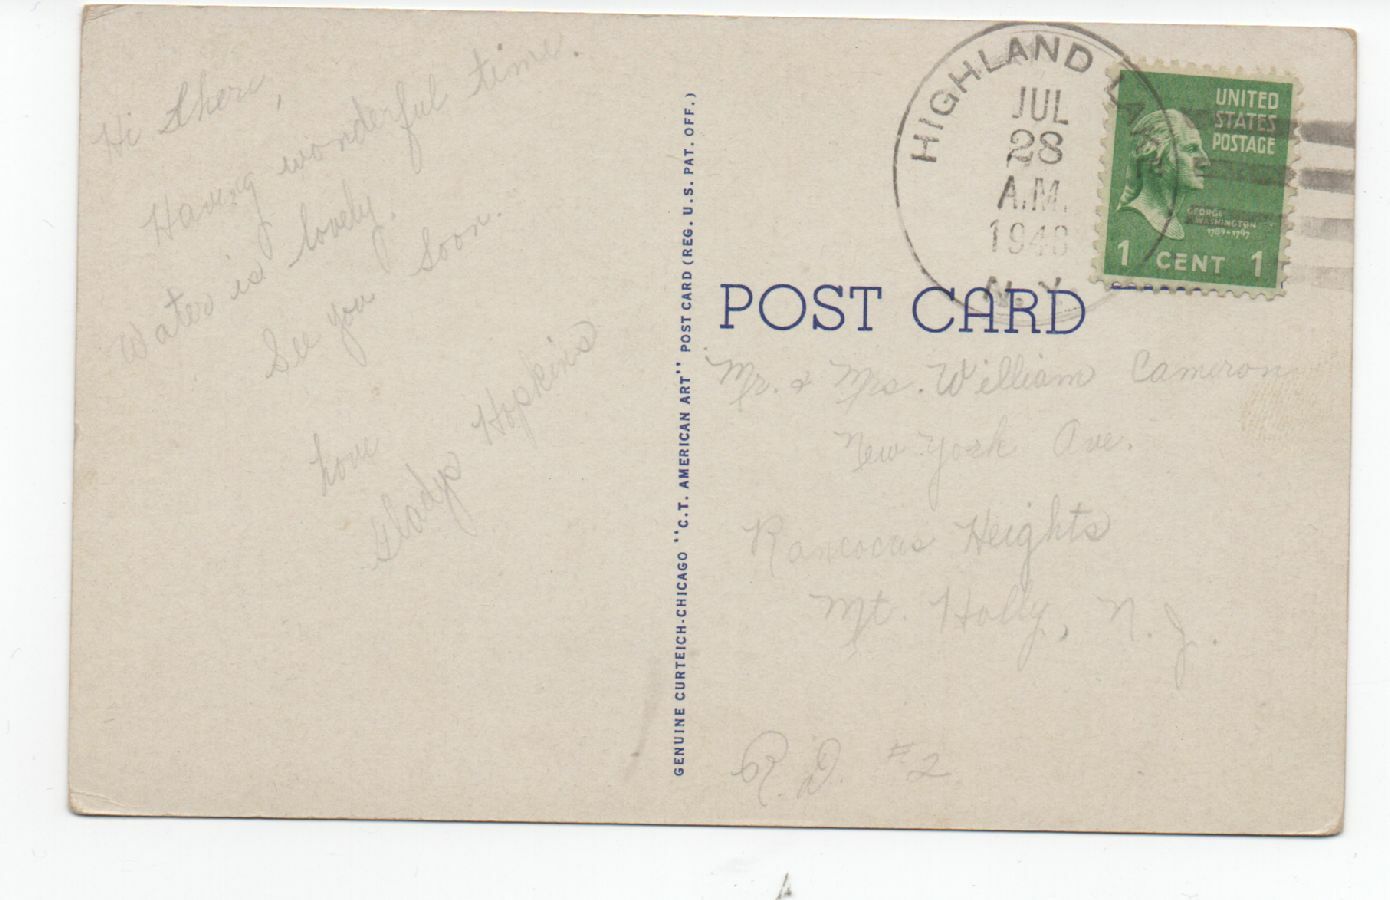 Hi there,
Having wonderful time.
Water is lovely.
See you soon.
Love
Gladys Hopkins
GENUINE CURTEICH-CHICAGO "C.T. AMERICAN ART" POST CARD (REG. U.S. PAT. OFF.)
HIGHLAND LAKE
JUL
28
A.M.
1948
N.Y.
UNITED
STATES
POSTAGE
GEORGE
WASHINGTON
1789-1797
1 CENT 1
POST CARD
Mr. & Mrs. William Cameron
New York Ave.
Rancocas Heights
Mt. Holly, N.J.
R.D. #2